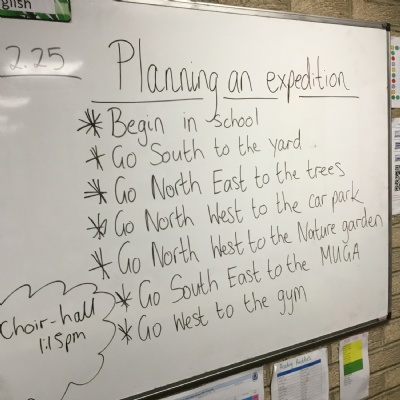 glish
2.25
Planning an expedition
* Begin in school
* Go South to the yard
* Go North East to the trees
* Go North West to the car park
* Go North West to the Nature garden
* Go South East to the MUGA
* Go West to the gym
Choir-hall
1:15pm
Reading